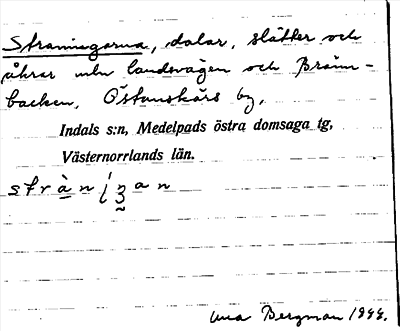 Stranningarna, dalar, slätter och
åkrar mln landsvägen och Bränn-
backen, Östanskärs by,
Indals s:n, Medelpads östra domsaga tg,
Västernorrlands län.
Bergman 1944.